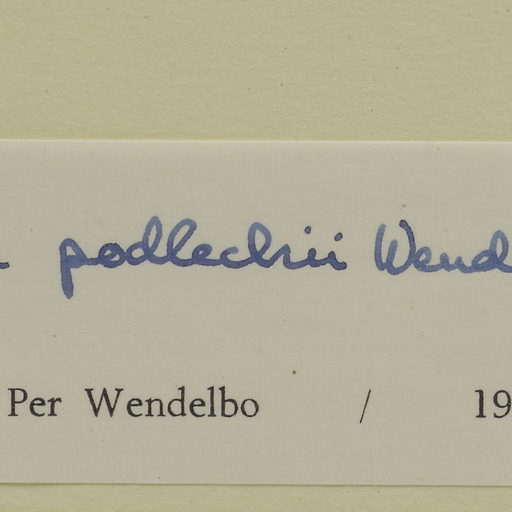 podlechii Wend
Per Wendelbo / 19